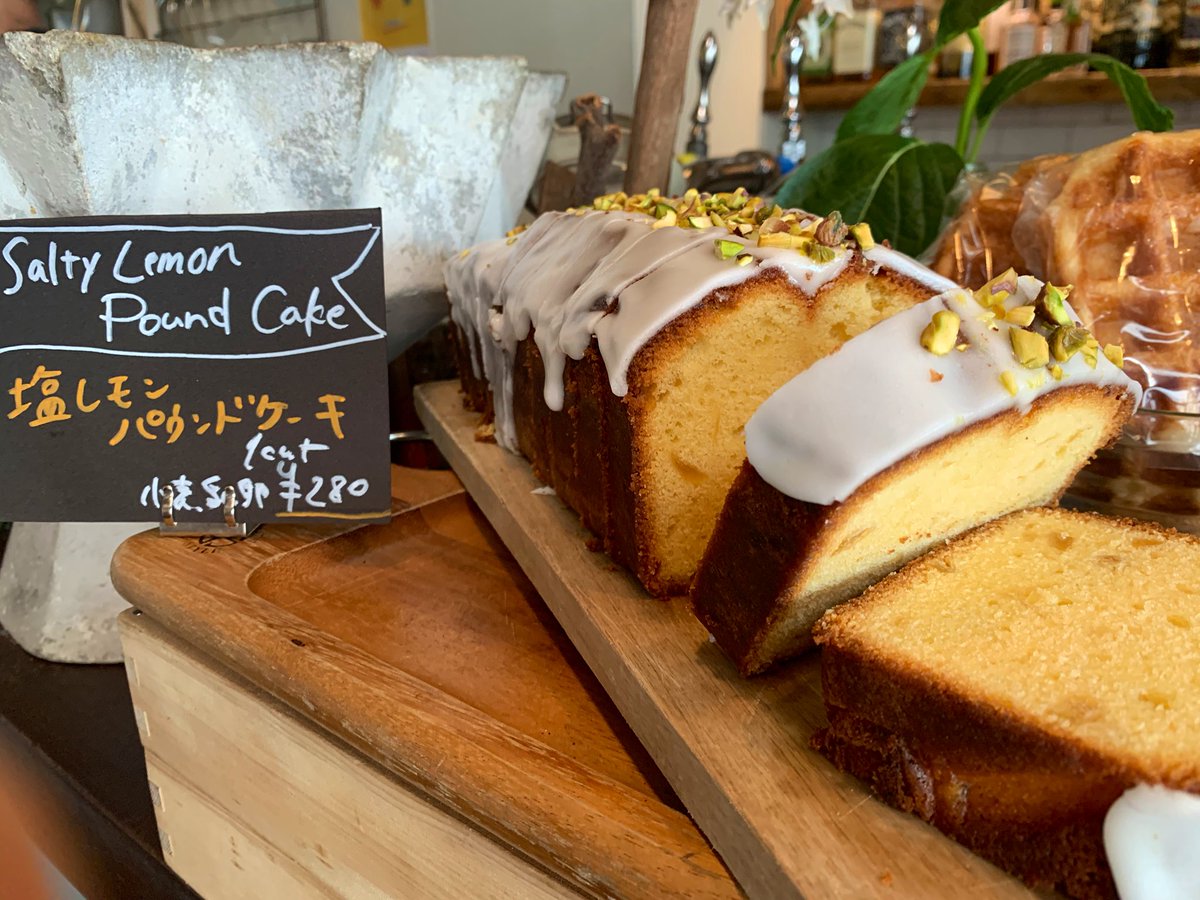 Salty Lemon
Pound Cake
塩レモン
パウンドケーキ
1cut
小麦.乳.卵 ¥280